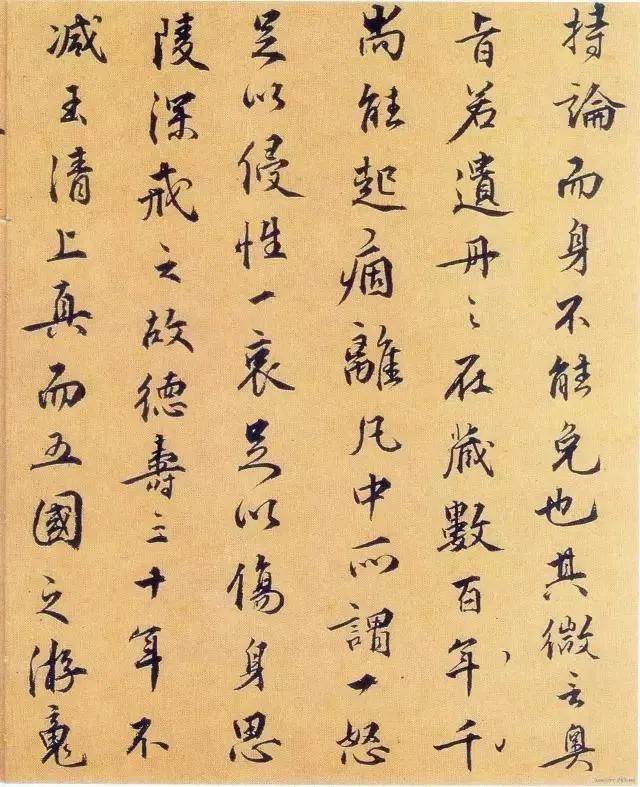 持論而身不能免也其微言奥
旨若遺丹之在藏數百年千
尚能起痼離凡中所謂一怒
足以侵性一哀足以傷身思
陵深戒之故德壽三十年不
减玉清上真而五國之游